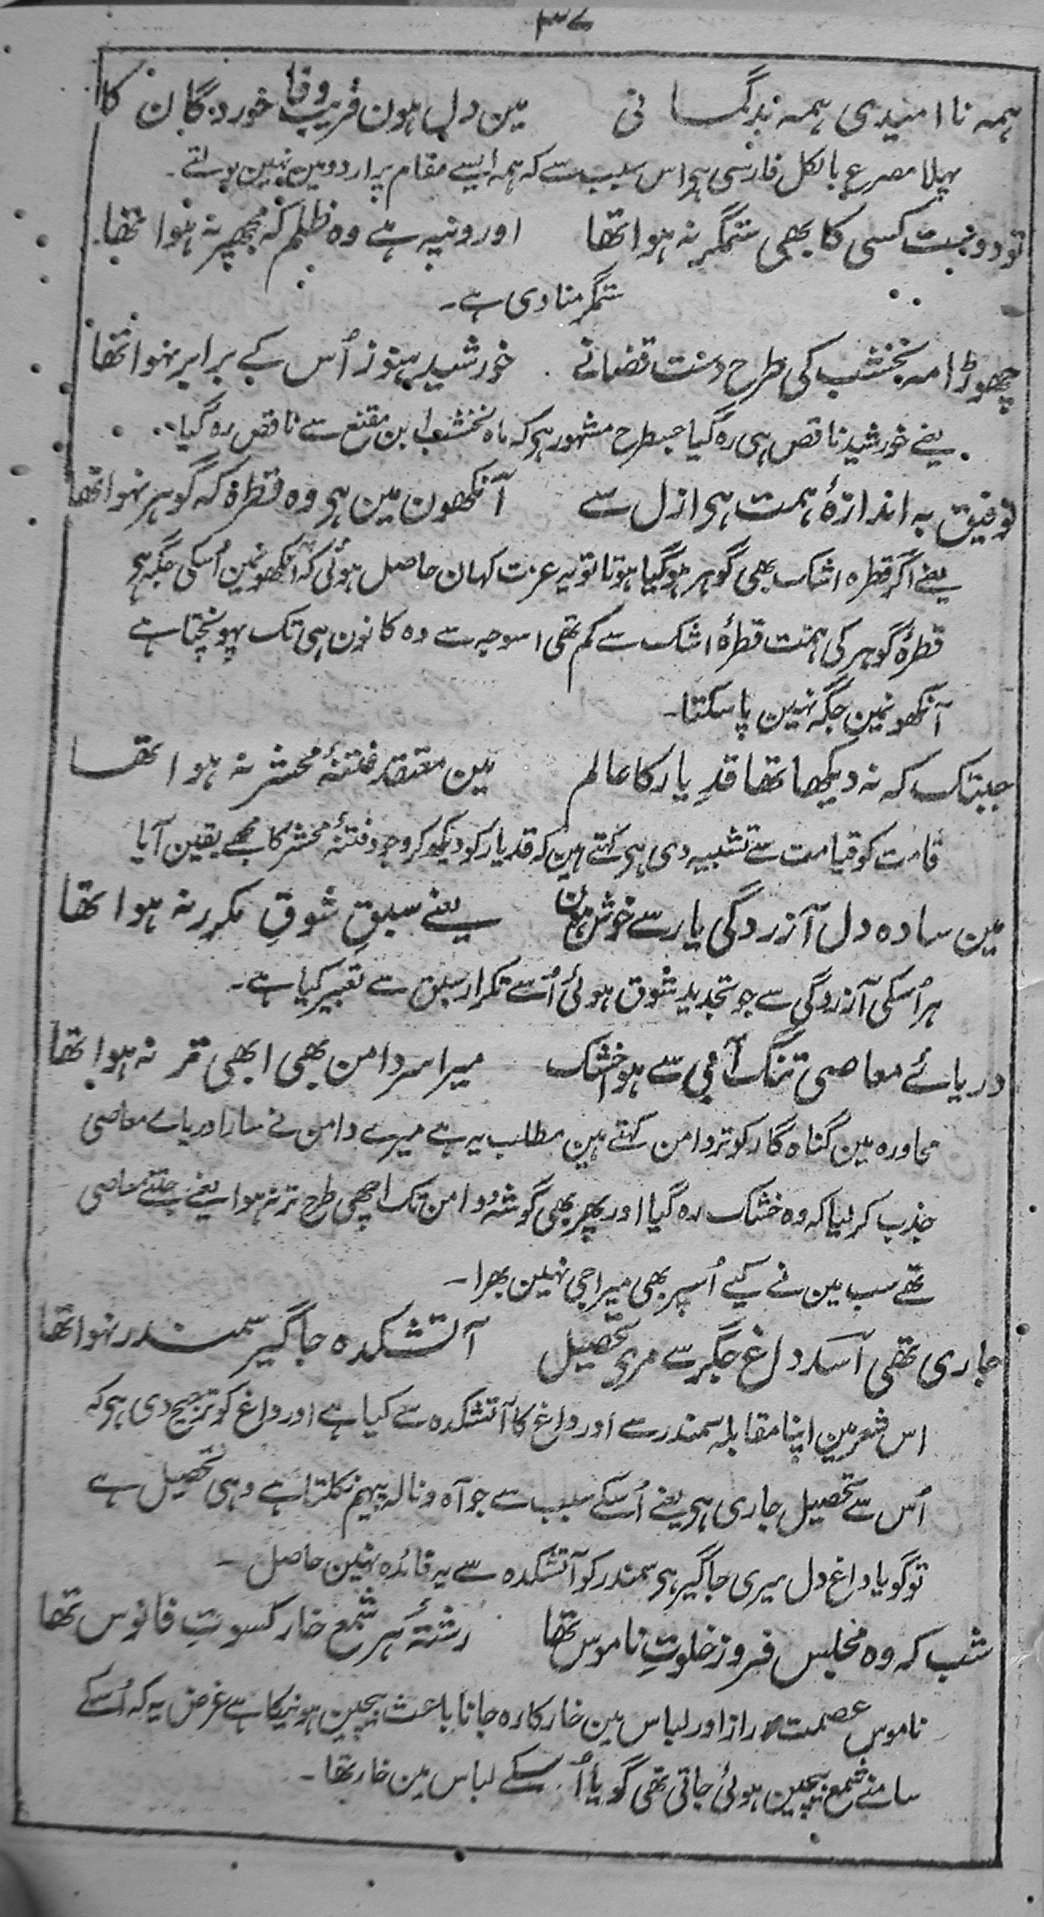 ۳۷
ہمہ نا امیدی ہمہ بدگمانی مین دل ہون فریب وفا خوردگان کا
پہلا مصرع بالکل فارسی ہی اس سبب سے کہ ہمہ ایسے مقام پر اردو مین نہین بولتے۔
تو دوست کسی کا بھی ستمگر نہ ہوا تھا اورونپہ ہے وہ ظلم کہ مجھپر نہ ہوا تھا
ستمگر منادی ہے۔
چھوڑا مہ نخشب کی طرح دست قضانے خورشید ہنوز اُس کے برابر نہوا تھا
یعنے خورشید ناقص ہی رہ گیا جسطرح مشہور ہی کہ ماہ نخشب ابن مقنع سے ناقص رہ گیا
توفیق بہ اندازۂ ہمت ہی ازل سے آنکھون مین ہی وہ قطرہ کہ گوہر نہوا تھا
یعنے اگر قطرہ اشک بھی گوہر ہوگیا ہوتا تو یہ عزت کہان حاصل ہوئی کہ آنکھونمین اُسکی جگہ ہی
قطرۂ گوہر کی ہمت قطرۂ اشک سے کم تھی اسوجہ سے وہ کانون ہی تک پہونچتا ہے
آنکھونمین جگہ نہین پاسکتا۔
جبتک کہ نہ دیکھا تھا قدِ یار کا عالم مین معتقد فتنۂ محشر نہ ہوا تھا
قامت کو قیامت سے تشبیہ دی ہی کہتے ہین کہ قد یار کو دیکھ کر وجود فتنۂ محشر کا مجھے یقین آیا
مین سادہ دل آزردگی یار سے خوش ہون یعنے سبقِ شوقِ مکرر نہ ہوا تھا
ہر اُسکی آزردگی سے جو تجدید شوق ہوئی اُسے تکرار سبق سے تعبیر کیا ہے۔
دریائے معاصی تنگ آبی سے ہوا خشک میرا سر دامن بھی ابھی تر نہ ہوا تھا
محاورہ مین گناہ گار کو تردامن کہتے ہین مطلب یہ ہے میرے دامن نے سارا دریاے معاصی
جذب کرلیا کہ وہ خشک رہ گیا اور پھر بھی گوشۂ دامن تک اچھی طرح تر نہ ہوا یعنے جتنے معاصی
تھے سب مین نے کیے اُسپر بھی میرا جی نہین بھرا۔
جاری تھی اسد داغ جگر سے مری تحصیل آتشکدہ جاگیر سمندر نہوا تھا
اس شعر مین اپنا مقابلہ سمندر سے اور داغ کا آتشکدہ سے کیا ہے اور داغ کو ترجیح دی ہی کہ
اُس سے تحصیل جاری ہی یعنے اُسکے سبب سے جو آہ و نالہ پیہم نکلتا ہے وہی تحصیل ہے
تو گویا داغ دل میری جاگیر ہی سمندر کو آتشکدہ سے یہ فائدہ نہین حاصل۔
شب کہ وہ مجلس فروز خلوتِ ناموس تھا رشتۂ ہر شمع خار کسوتِ فانوس تھا
ناموس عصمت راز اور لباس مین خار کا رہ جانا باعث بیچین ہونیکا ہے غرض یہ کہ اُسکے
سامنے شمع بیچین ہوئی جاتی تھی گویا اُسکے لباس مین خار تھا۔